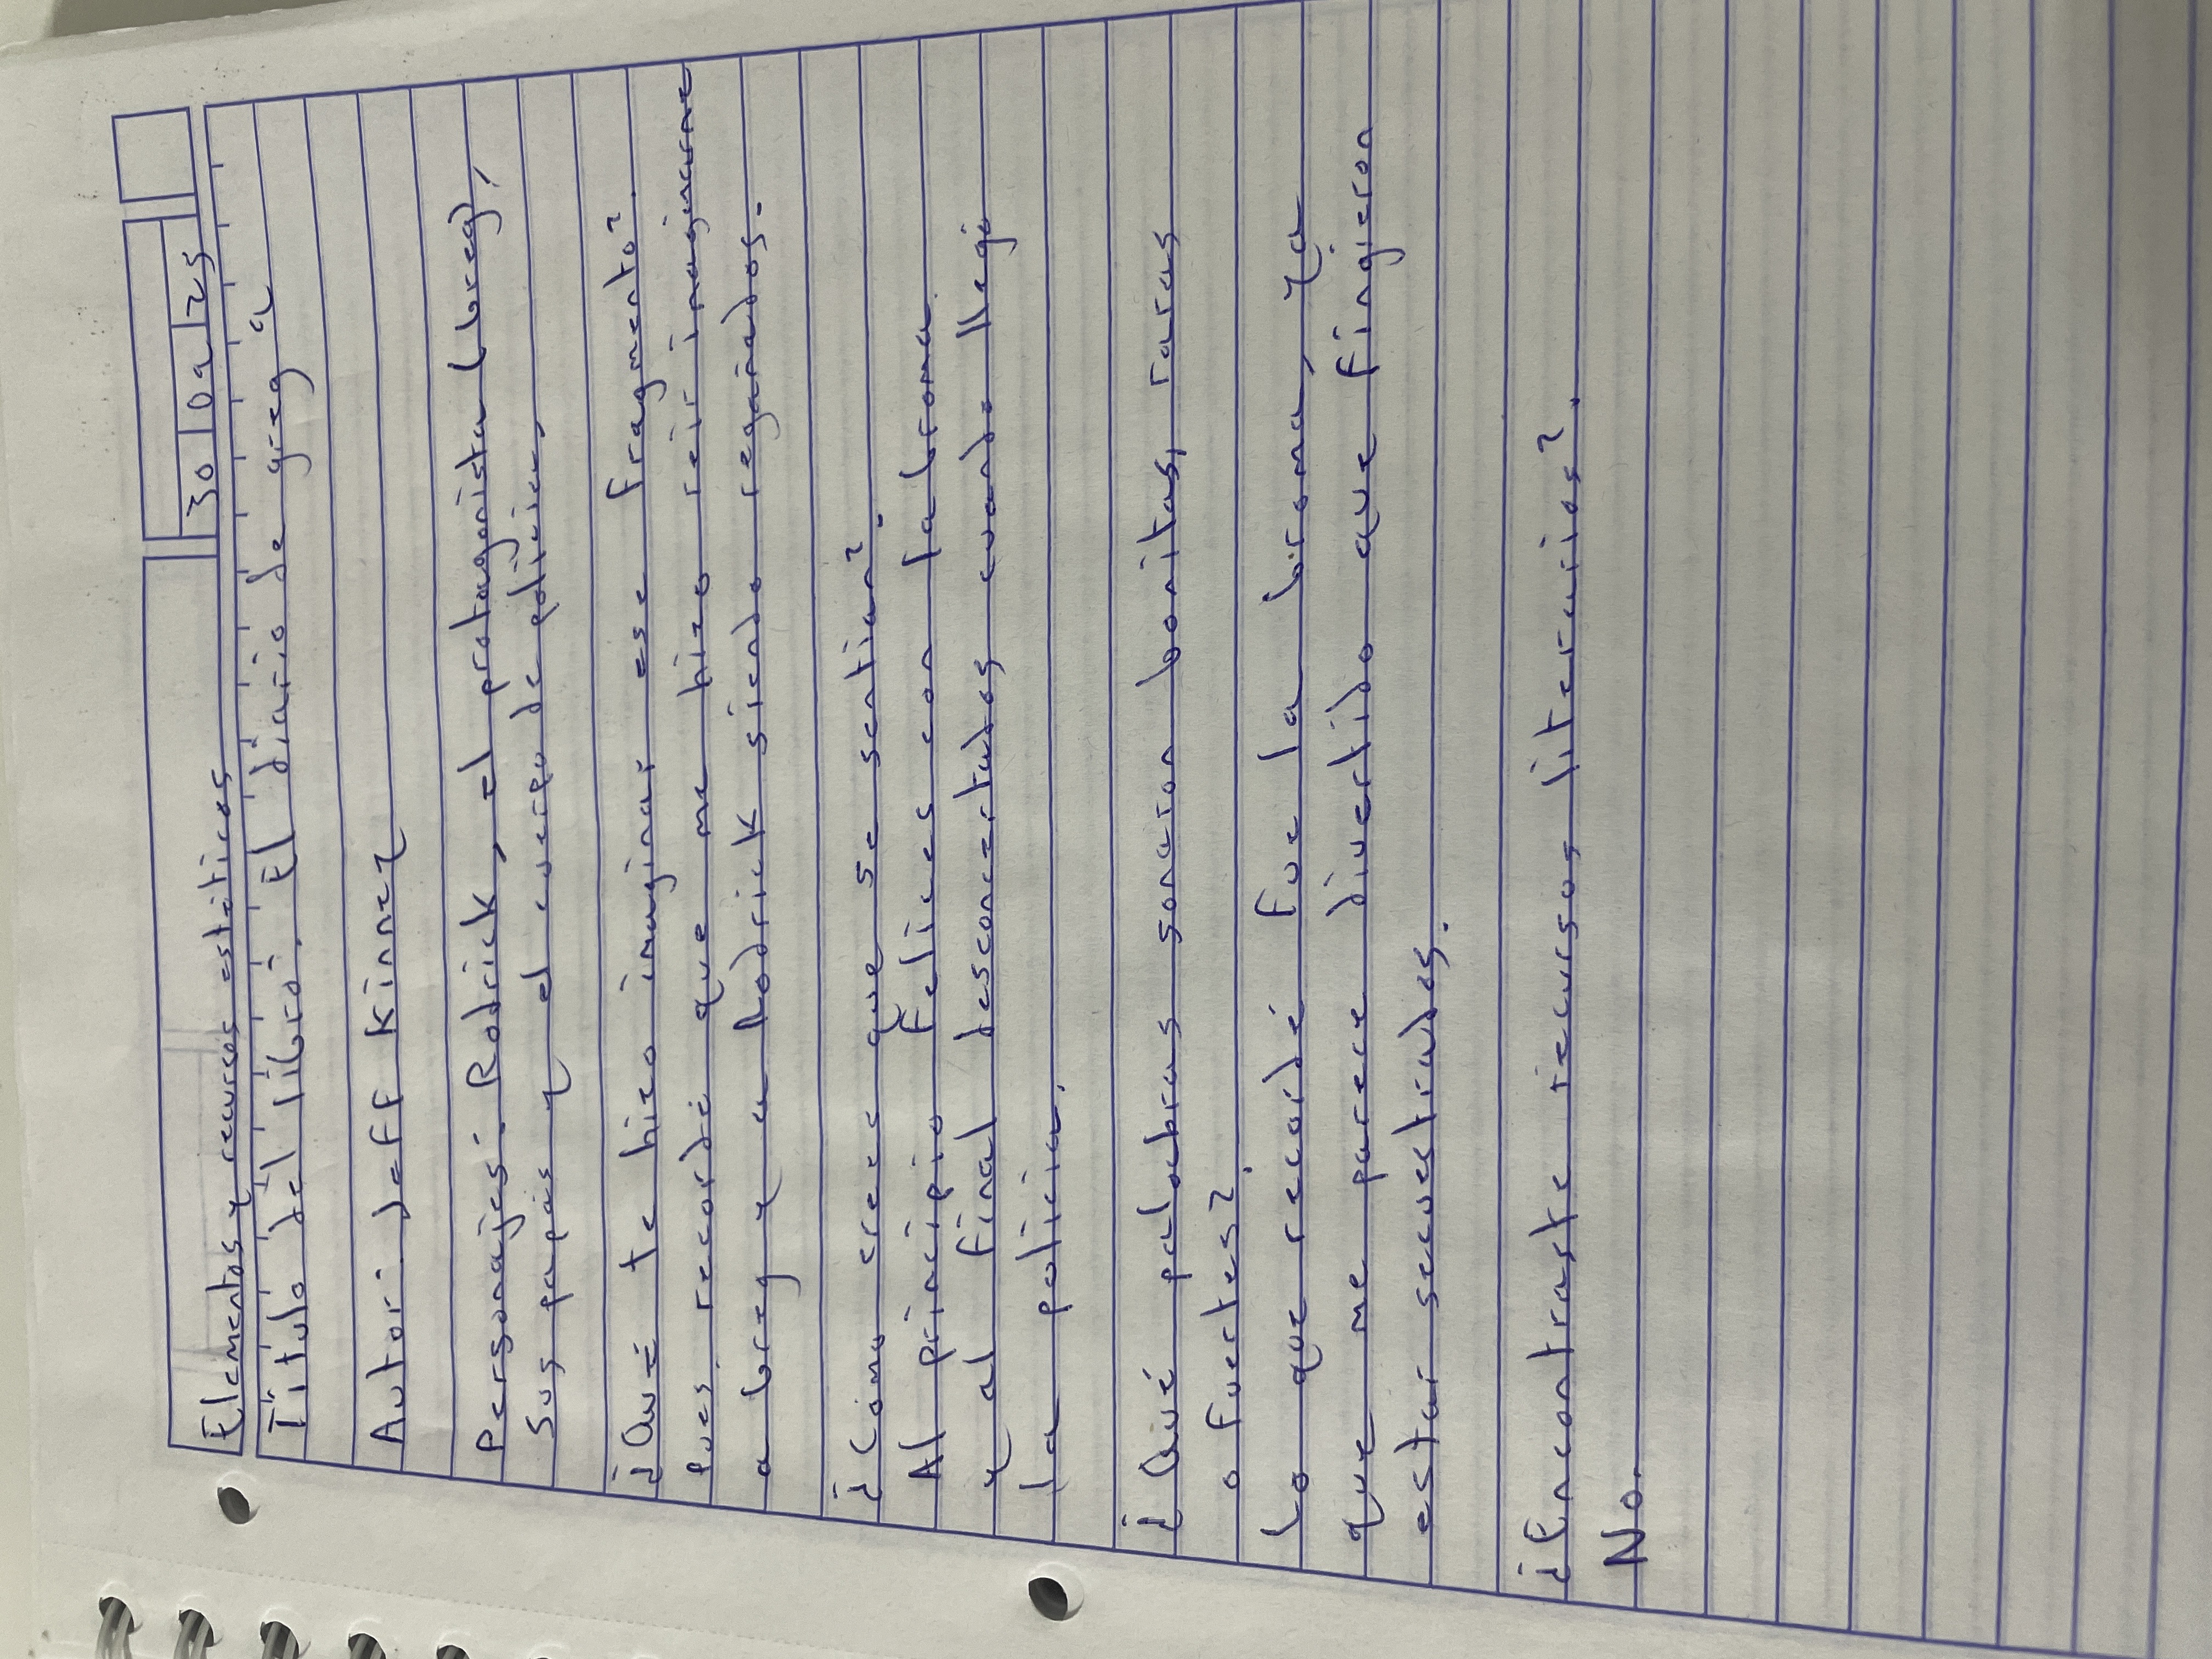 Elementos y recursos estéticos
30 09 25
Título del libro: El diario de greg 2
Autor: Jeff Kinney
Personajes: Rodrick, el protagonista (Greg),
Sus papás y el cuerpo de policia,
¿Qué te hizo imaginar ese fragmento?
Pues, recordé que me hizo reír imaginarme
a Greg y a Rodrick siendo regañados.
¿Cómo crees que se sentían?
Al principio Felices con la broma
y al final desconcertados cuando llegó
la policia.
¿Qué palabras sonaron bonitas, raras
o fuertes?
Lo que recordé fue la broma, ya
que me parece divertido que fingieron
estar secuestrados.
¿Encontraste recursos literarios?
No.